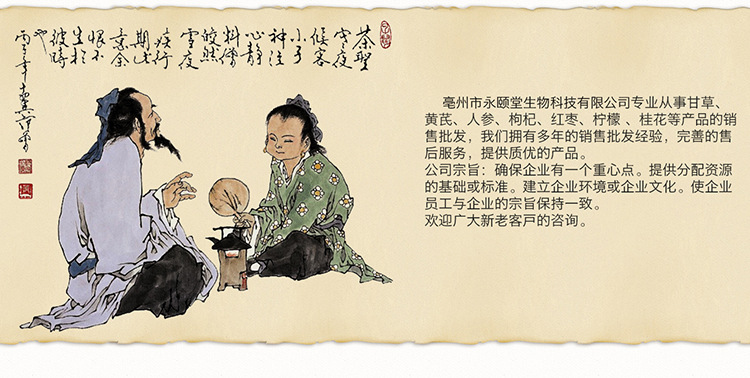 茶聖
寒夜
候客
小子
神注
心静
皎然
雪夜
疾行
恨不
生於
彼時
也
亳州市永颐堂生物科技有限公司专业从事甘草、
黄芪、人参、枸杞、红枣、柠檬 、桂花等产品的销
售批发，我们拥有多年的销售批发经验，完善的售
后服务，提供质优的产品。
公司宗旨：确保企业有一个重心点。提供分配资源
的基础或标准。建立企业环境或企业文化。使企业
员工与企业的宗旨保持一致。
欢迎广大新老客户的咨询。